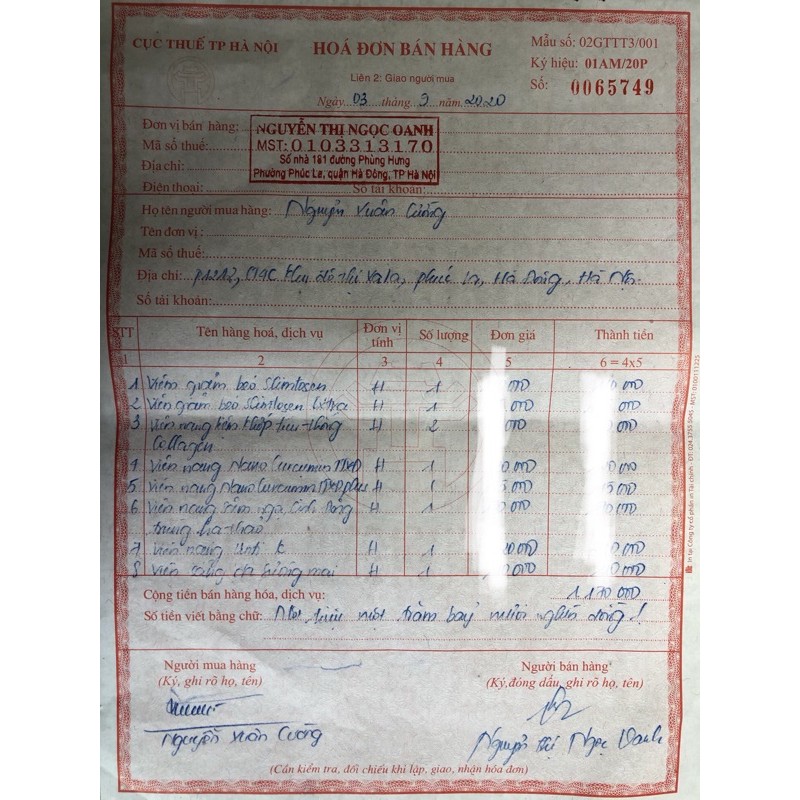 CỤC THUẾ TP HÀ NỘI
HOÁ ĐƠN BÁN HÀNG
Mẫu số: 02GTTT3/001
Ký hiệu: 01AM/20P
Liên 2: Giao người mua
Số: 0065749
Ngày 03 tháng 3 năm 2020
Đơn vị bán hàng: NGUYỄN THỊ NGỌC OANH
Mã số thuế: MST: 0103313170
Địa chỉ: Số nhà 181 đường Phùng Hưng
Phường Phúc La, quận Hà Đông, TP Hà Nội
Điện thoại: Số tài khoản:
Họ tên người mua hàng: Nguyễn Xuân Cường
Tên đơn vị:
Mã số thuế:
Địa chỉ: P1212, khu đô thị Xala, phúc la, Hà Đông, Hà Nội
Số tài khoản:
STT Tên hàng hoá, dịch vụ Đơn vị tính Số lượng Đơn giá Thành tiền
1 2 3 4 5 6 = 4x5
1 Viên giảm béo Slimtosen H 1 000 000
2 Viên giảm béo Slimtosen Extra H 1 000 000
3 Viên nang H 2 000 000
Collagen
4 Viên nang Nano Curcumin H 1 0000 0000
5 Viên nang Nano Curcumin plus H 1 5000 5000
6 Viên nang sâm nga, linh đông H 1
trùng hạ thảo
7 Viên nang H 1 0000 0000
8 Viên H 1 0000 0000
Cộng tiền bán hàng hóa, dịch vụ: 1.170 000
Số tiền viết bằng chữ: Một triệu một trăm bảy mươi nghìn đồng!
Người mua hàng
(Ký, ghi rõ họ, tên)
Người bán hàng
(Ký,đóng dấu, ghi rõ họ, tên)
Nguyễn Xuân Cường
Nguyễn Thị Ngọc Oanh
(Cần kiểm tra, đối chiếu khi lập, giao, nhận hóa đơn)
In tại Công ty cổ phần in Tài chính - ĐT: 024.3755 5045 - MST: 0100111225